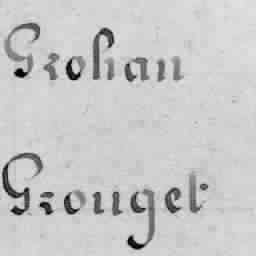 Grohan
Grouget